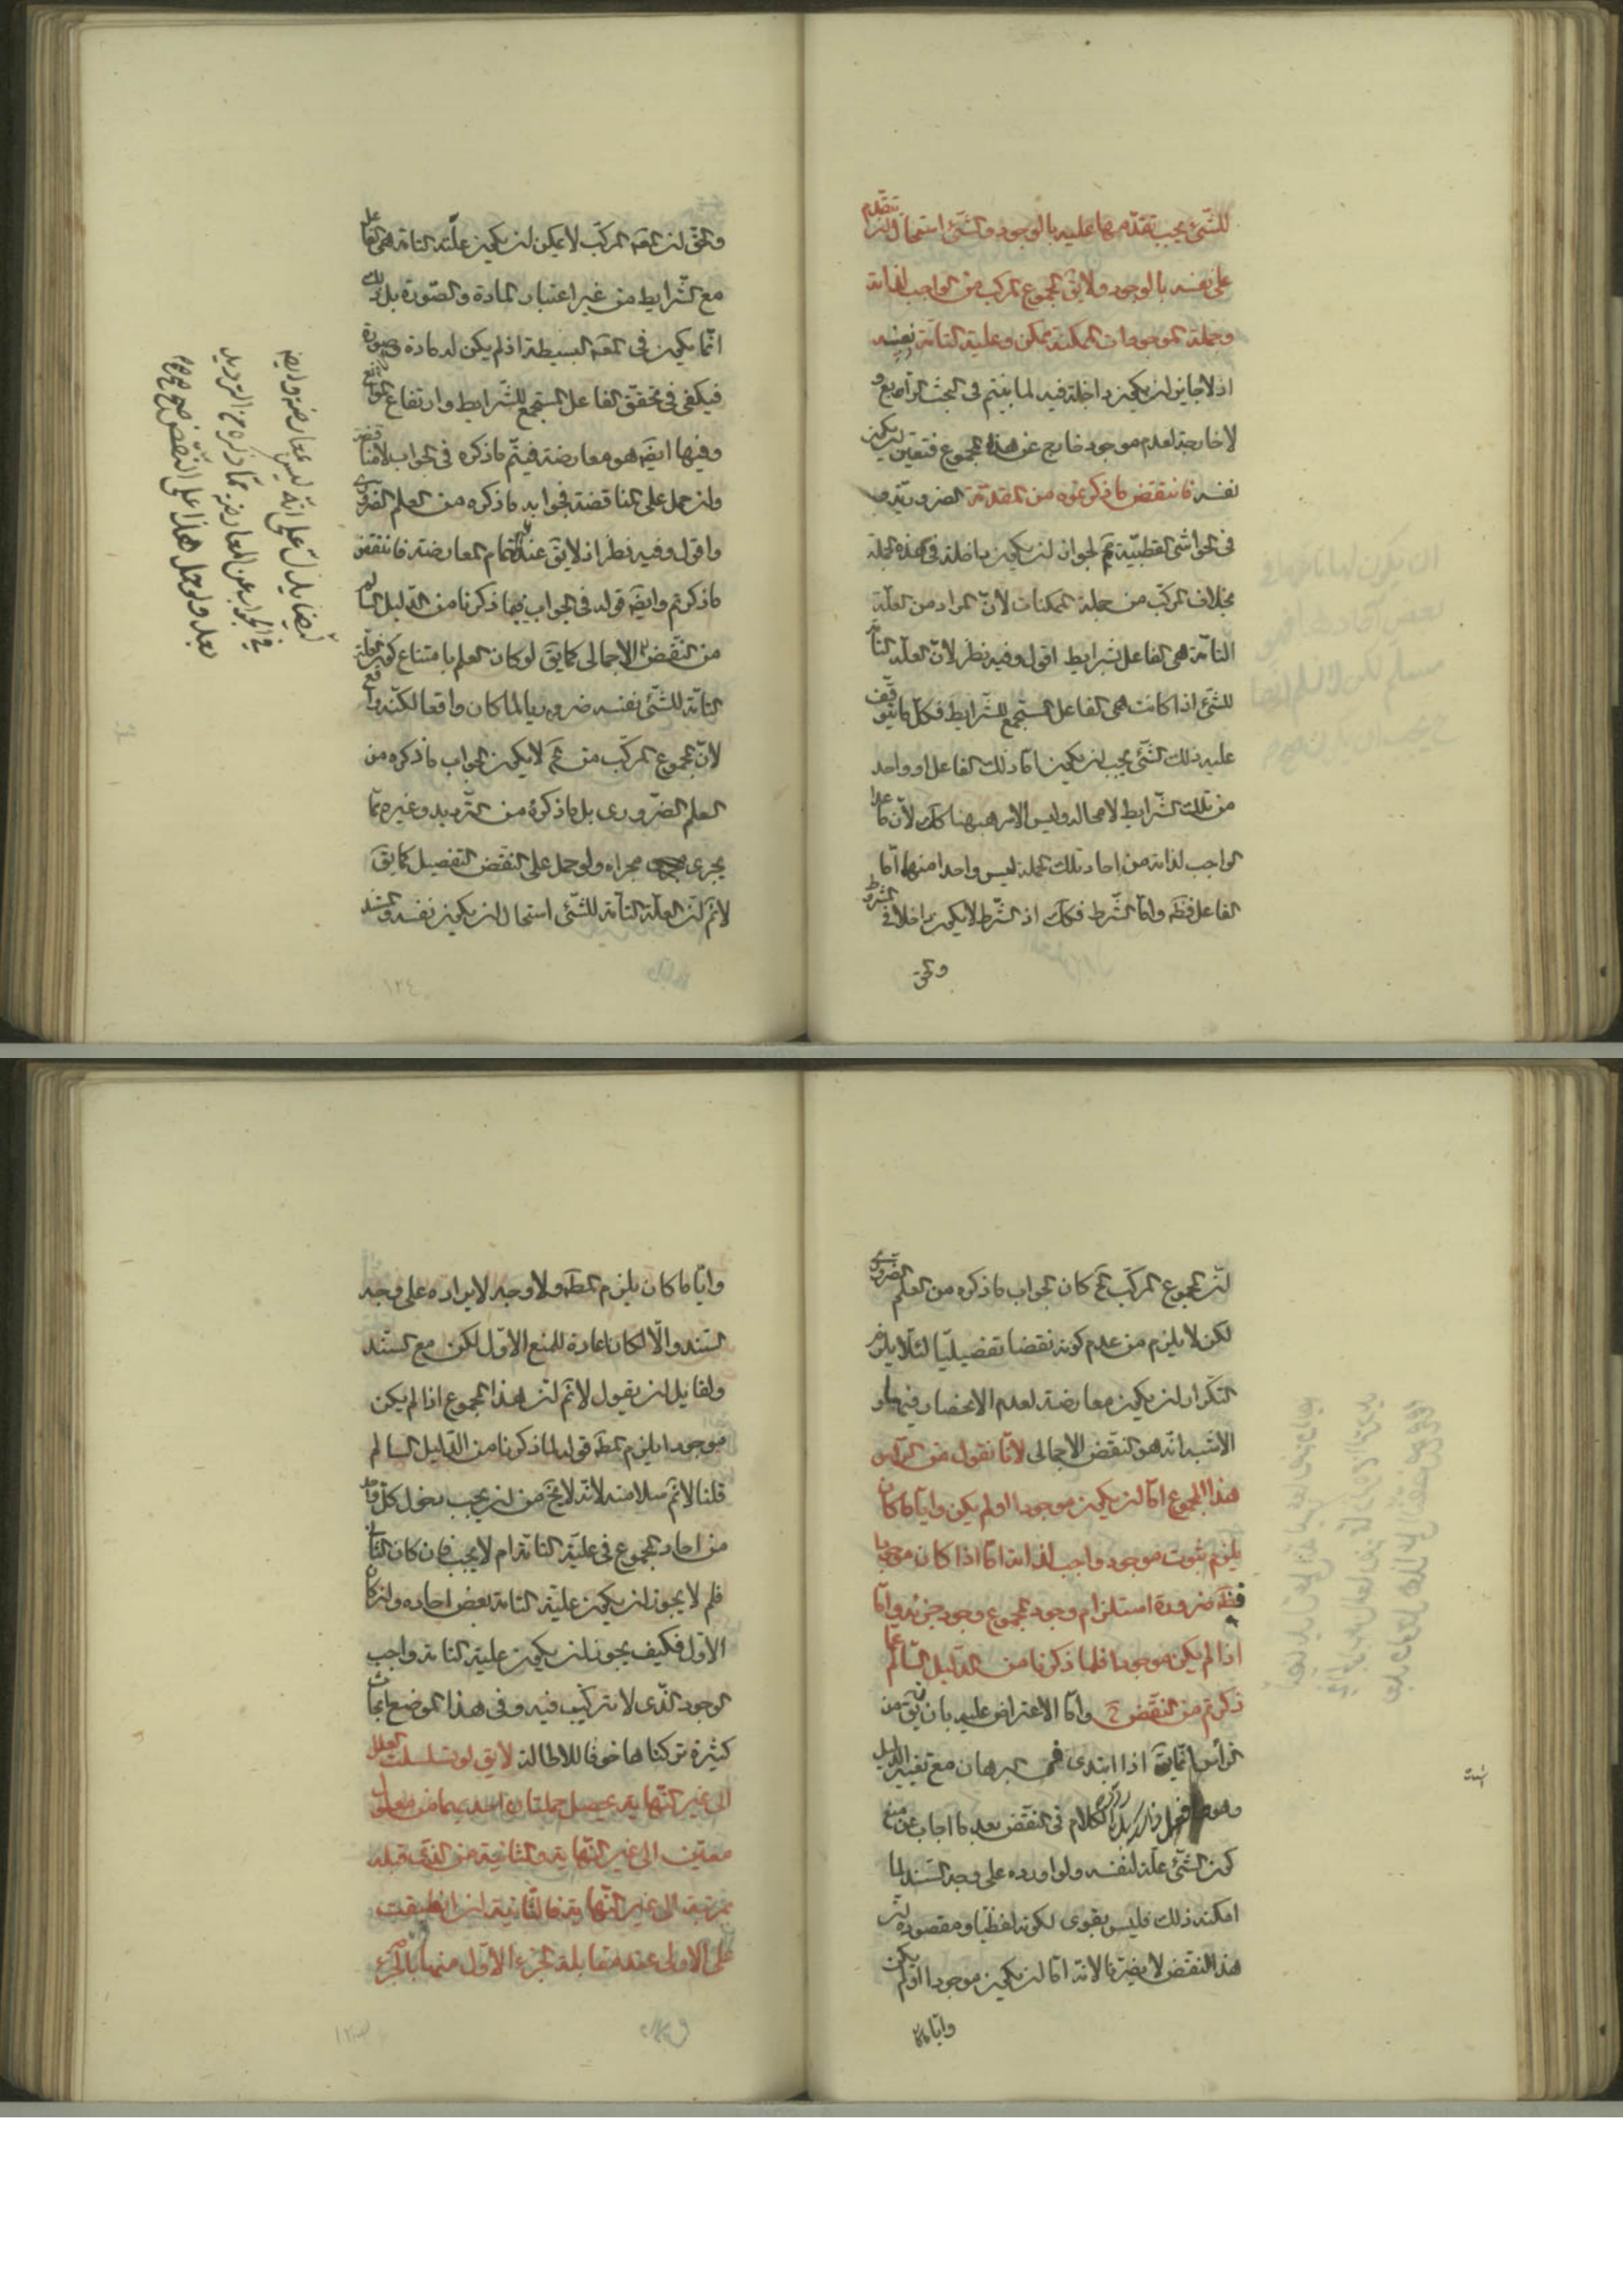 للشئ يجب تقدمها عليه بالوجود والشئ استحال ان يتقدم
على نفسه بالوجود ولا يق المجموع المركب من الواجب لذاته
وجملة الموجودات الممكنة ممكن وعليته التامة نفسه
اذ لا جايز ان يكون داخلة فيه لما بينتم في البحث الرابع و
لا خارجة لعدم موجود خارج عن هذا المجموع فتعين ان يكون
نفسه فانتقض ما ذكرتموه من المقدمة الضرورية و
في الحواشي القطبية لجواز ان يكون داخلة في هذه الجملة
بخلاف المركب من جملة الممكنات لان المراد من العلة
التامة هي الفاعل بشرايط اقول وفيه نظر لان العلة التامة
للشئ اذا كانت هي الفاعل المستجمع للشرايط فكل ما يتوقف
عليه ذلك الشئ يجب ان يكون اما ذلك الفاعل او واحد
من تلك الشرايط لا محالة وليس الامر ههنا كك لان ما عدا
الواجب لذاته من احاد تلك الجملة ليس واحدا منهما اما
الفاعل فظ واما الشرط فكك اذ الشرط لا يكون داخلا في المشروط
والحق
والحق ان العلة المركب لا يمكن ان يكون علته التامة هي الفاعل
مع الشرايط من غير اعتبار المادة والصورة بل ذلك
انما يكون في البسيطة اذ لم يكن له مادة وصورة
فيكفي في تحققه الفاعل المستجمع للشرايط وارتفاع الموانع
وفيها ايضا هو معارضة فيتم ما ذكره في الجواب لا مناقضة
وان حمل على المناقضة فجوابه ما ذكره من العلم الضروري
واقول وفيه نظر اذ لا يق عند تمام المعارضة فانتقض
ما ذكرتم وايضا قوله في الجواب فيما ذكرنا من الدليل السالم
من النقض الاجمالي كما يق لو كان العلم بامتناع كون العلة
التامة للشئ نفسه ضروريا لما كان واقعا لكنه واقع
لان المجموع المركب من لا يكون الجواب ما ذكره من
العلم الضروري بل ما ذكره من الترديد وغيره مما
يجري مجراه ولو حمل على النقض التفصيلي كما يق
لانم ان العلة التامة للشئ استحال ان يكون نفسه والسند
ايضا يدل على انه ليس بمعارضة وايضا
في الجواب عن المعارضة مما ذكره من الترديد
بعد ولو حمل هذا على النقض صح
ان المجموع المركب كان الجواب ما ذكره من العلم الضروري
لكن لا يلزم من عدم كونه نقضا تفصيليا لئلا يلزم
التكرار ان يكون معارضة لعدم الانحصار فيهما و
الاشبه انه هو النقض الاجمالي لانا نقول من الرأس
هذا المجموع اما ان يكون موجودا او لم يكن وايا ما كان
يلزم ثبوت موجود واجب لذاته اما اذا كان موجودا
فظ ضرورة استلزام وجود المجموع وجود جزئه واما
اذا لم يكن موجودا فلما ذكرنا من الدليل السالم عما
ذكرتم من النقض ح واما الاعتراض عليه بان يق من
الرأس انما يق اذا ابتدى في البرهان مع تغيير الدليل
الكلام في النقض بعد ما اجاب عن منع
كون الشئ علة لنفسه ولو اورده على وجه السند لما
امكنه ذلك فليس بقوي لكونه لفظيا ومقصوده ان
هذا النقض لا يضرنا لانه اما ان يكون موجودا او لم يكن
وايا ما كان
وايا ما كان يلزم المط ولا وجه لايراده على وجه
السند والا لكان اعادة للمنع الاول لكن مع السند
ولقايل ان يقول لانم ان هذا المجموع اذا لم يكن
موجودا يلزم المط قوله لما ذكرنا من الدليل السالم
قلنا لانم سلامته لانه لا يخ من ان يجب دخول كل واحد
من احاد المجموع في عليته التامة ام لا يجب فان كان الثاني
فلم لا يجوز ان يكون عليته التامة بعض احاده وان كان
الاول فكيف يجوز ان يكون عليته التامة واجب
الوجود الذي لا تركيب فيه وفي هذا الموضع ابحاث
كثيرة تركناها خوفا للاطالة لا يق لو تسلسلت العلل
الى غير النهاية يحصل جملتان احديهما من معلول
معين الى غير النهاية والثانية من الذي قبله
بمرتبة الى غير النهاية فالثانية ان انطبقت
على الاولى عند مقابلة الجزء الاول منها بالجزء